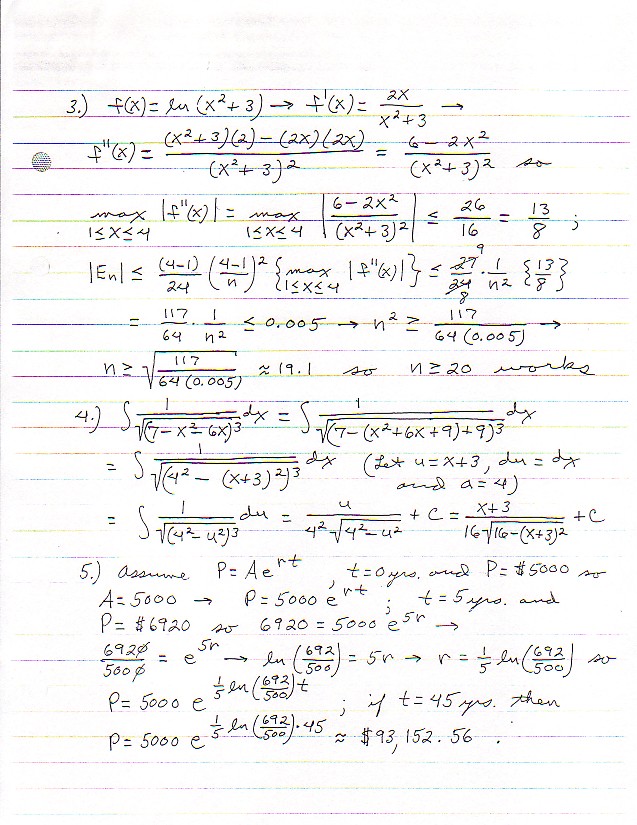 3.) f(x) = ln (x²+3) → f'(x) = 2x / (x²+3) →
f''(x) = ((x²+3)(2) - (2x)(2x)) / (x²+3)² = (6-2x²) / (x²+3)² so
max 1≤x≤4 |f''(x)| = max 1≤x≤4 |(6-2x²) / (x²+3)²| ≤ 26/16 = 13/8 ;
|En| ≤ (4-1)/24 ((4-1)/n)² {max 1≤x≤4 |f''(x)|} ≤ 27 9 / 24 8 · 1/n² {13/8}
= 117/64 · 1/n² ≤ 0.005 → n² ≥ 117 / 64(0.005) →
n ≥ √(117 / 64(0.005)) ≈ 19.1 so n ≥ 20 works
4.) ∫ 1/√(7-x²-6x)³ dx = ∫ 1/√(7-(x²+6x+9)+9)³ dx
= ∫ 1/√(4²-(x+3)²)³ dx (Let u = x+3, du = dx
and a = 4)
= ∫ 1/√(4²-u²)³ du = u / 4²√4²-u² + C = x+3 / 16√16-(x+3)² + C
5.) Assume P = Ae^rt, t=0 yrs. and P = $5000 so
A = 5000 → P = 5000 e^rt ; t = 5 yrs. and
P = $6920 so 6920 = 5000 e^5r →
6920/5000 = e^5r → ln (692/500) = 5r → r = 1/5 ln (692/500) so
P = 5000 e^(1/5 ln (692/500) t) ; if t = 45 yrs. then
P = 5000 e^(1/5 ln (692/500) · 45) ≈ $93,152.56 .